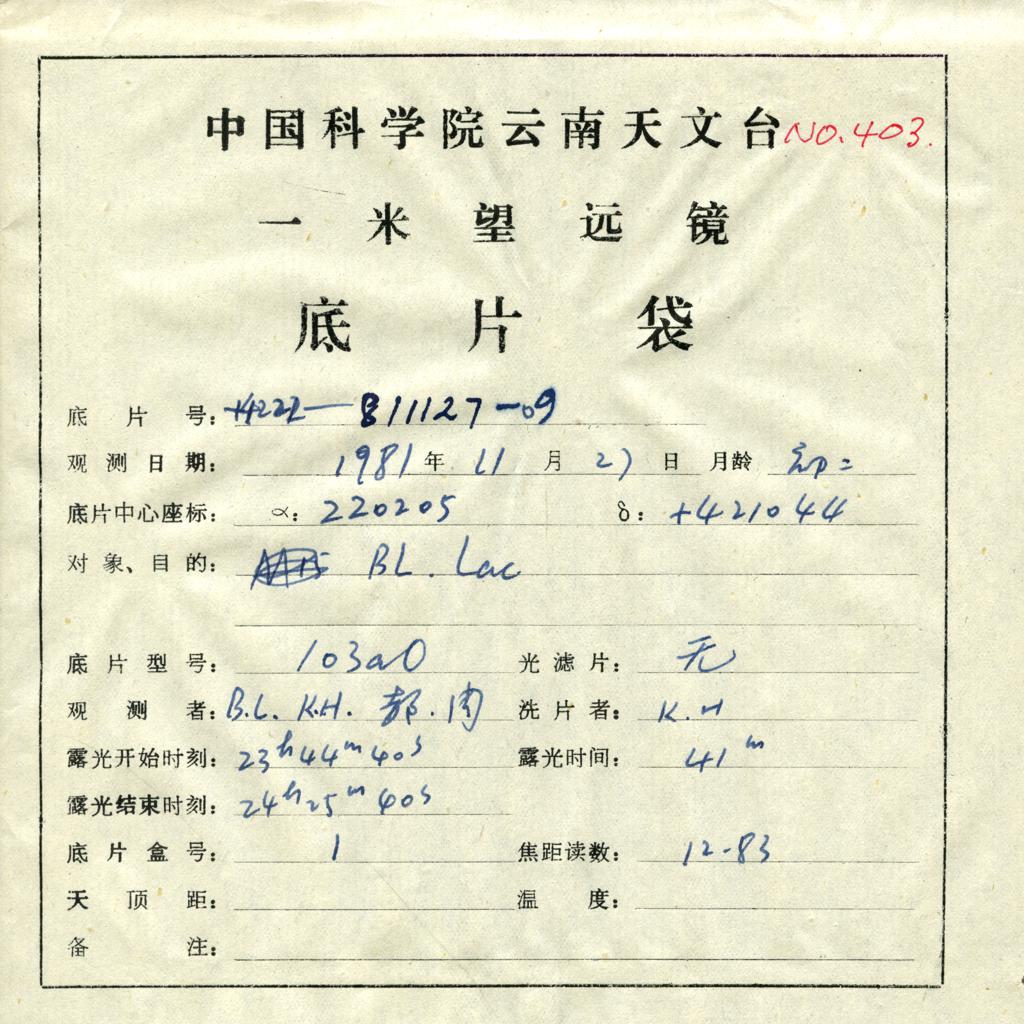 中国科学院云南天文台 NO.403.
一米望远镜
底片袋
底片号: +4222—811127-09
观测日期: 1981年 11月 27日 月龄 初二
底片中心座标: α: 220205 δ: +421044
对象、目的: BL. Lac
底片型号: 103aO 光滤片: 无
观测者: B.L. K.H. 郝. 周 洗片者: K.H
露光开始时刻: 23h44m40s 露光时间: 41m
露光结束时刻: 24h25m40s
底片盒号: 1 焦距读数: 12-83
天顶距: 温度:
备注: